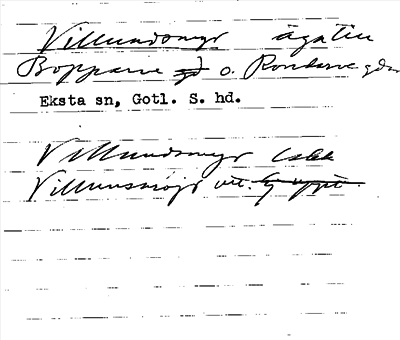 Villmundsmyr ägotin
Bopparve o. Rondarve gdr
Eksta sn, Gotl. S. hd.
Villmundsmyr
Villmunsmöjr utt.